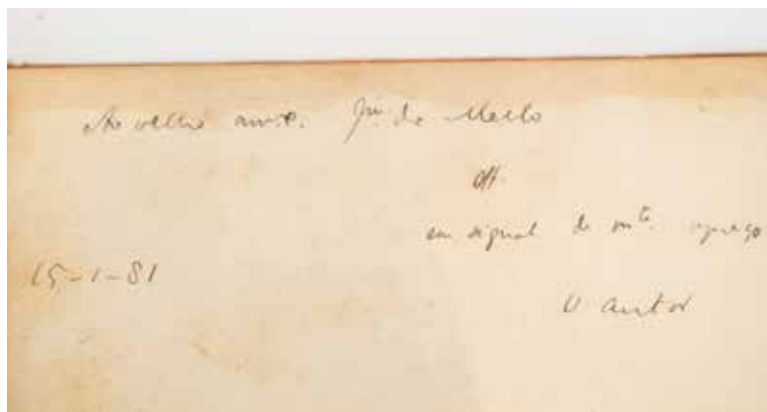 Ao velho amº. Jm. de Mello
off.
em signal de mto. apreço
15-1-81
O autor